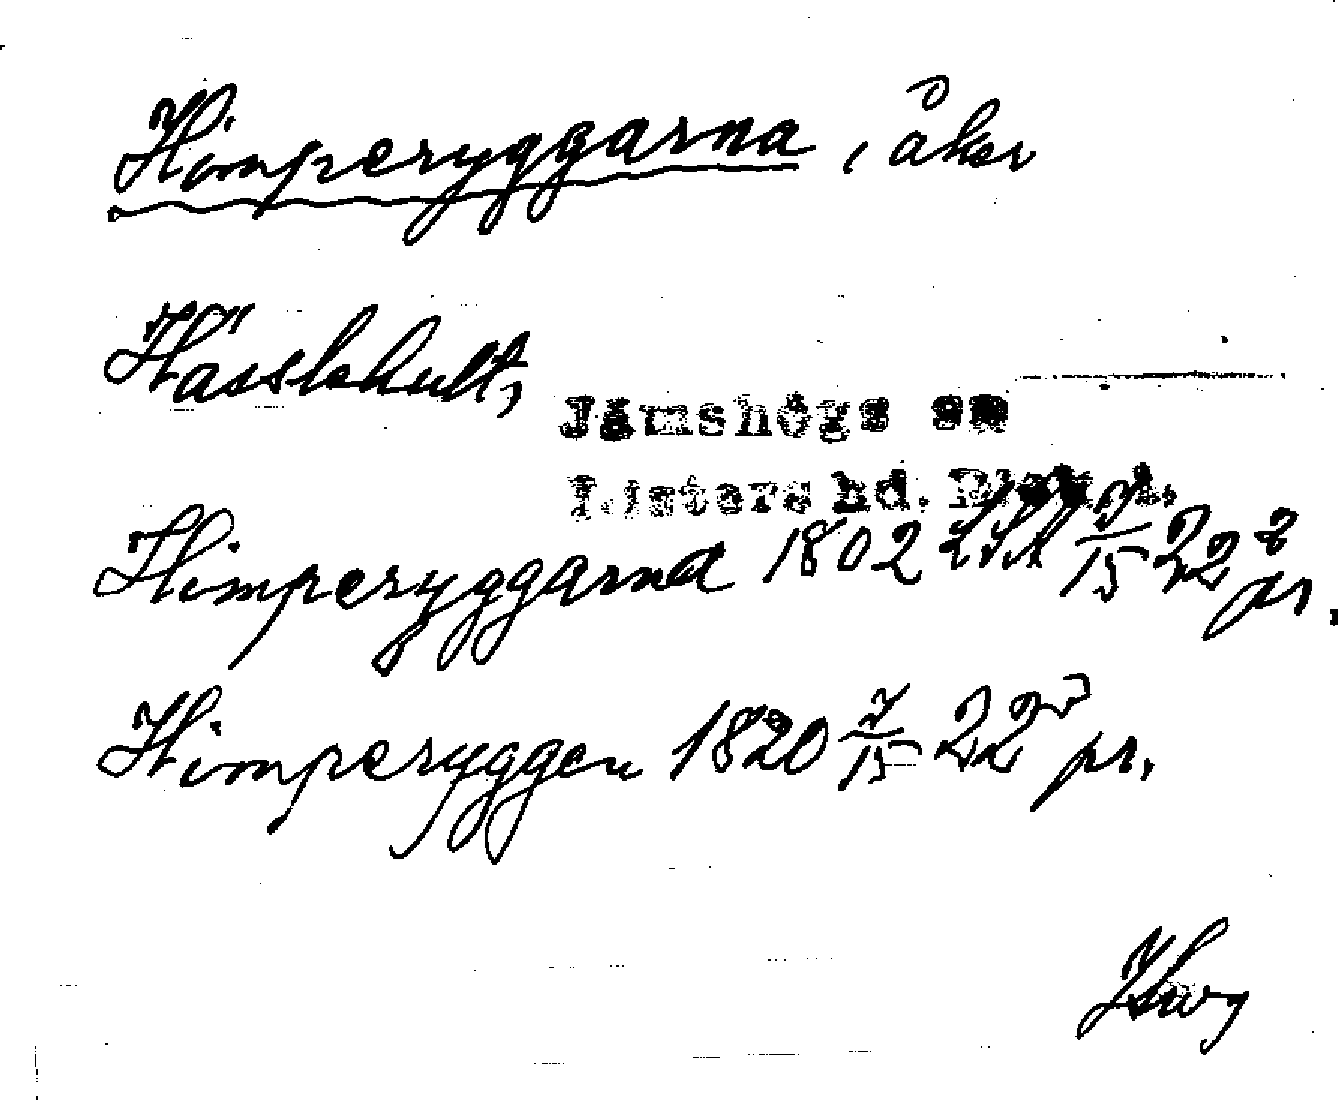 Himperyggarna, åker
Hässlehult,
Jämshögs sn
Listers hd. Blek. l.
Himperyggarna 1802 LSA J/15 22² pr.
Himperyggen 1820 J/15 22³ pr.